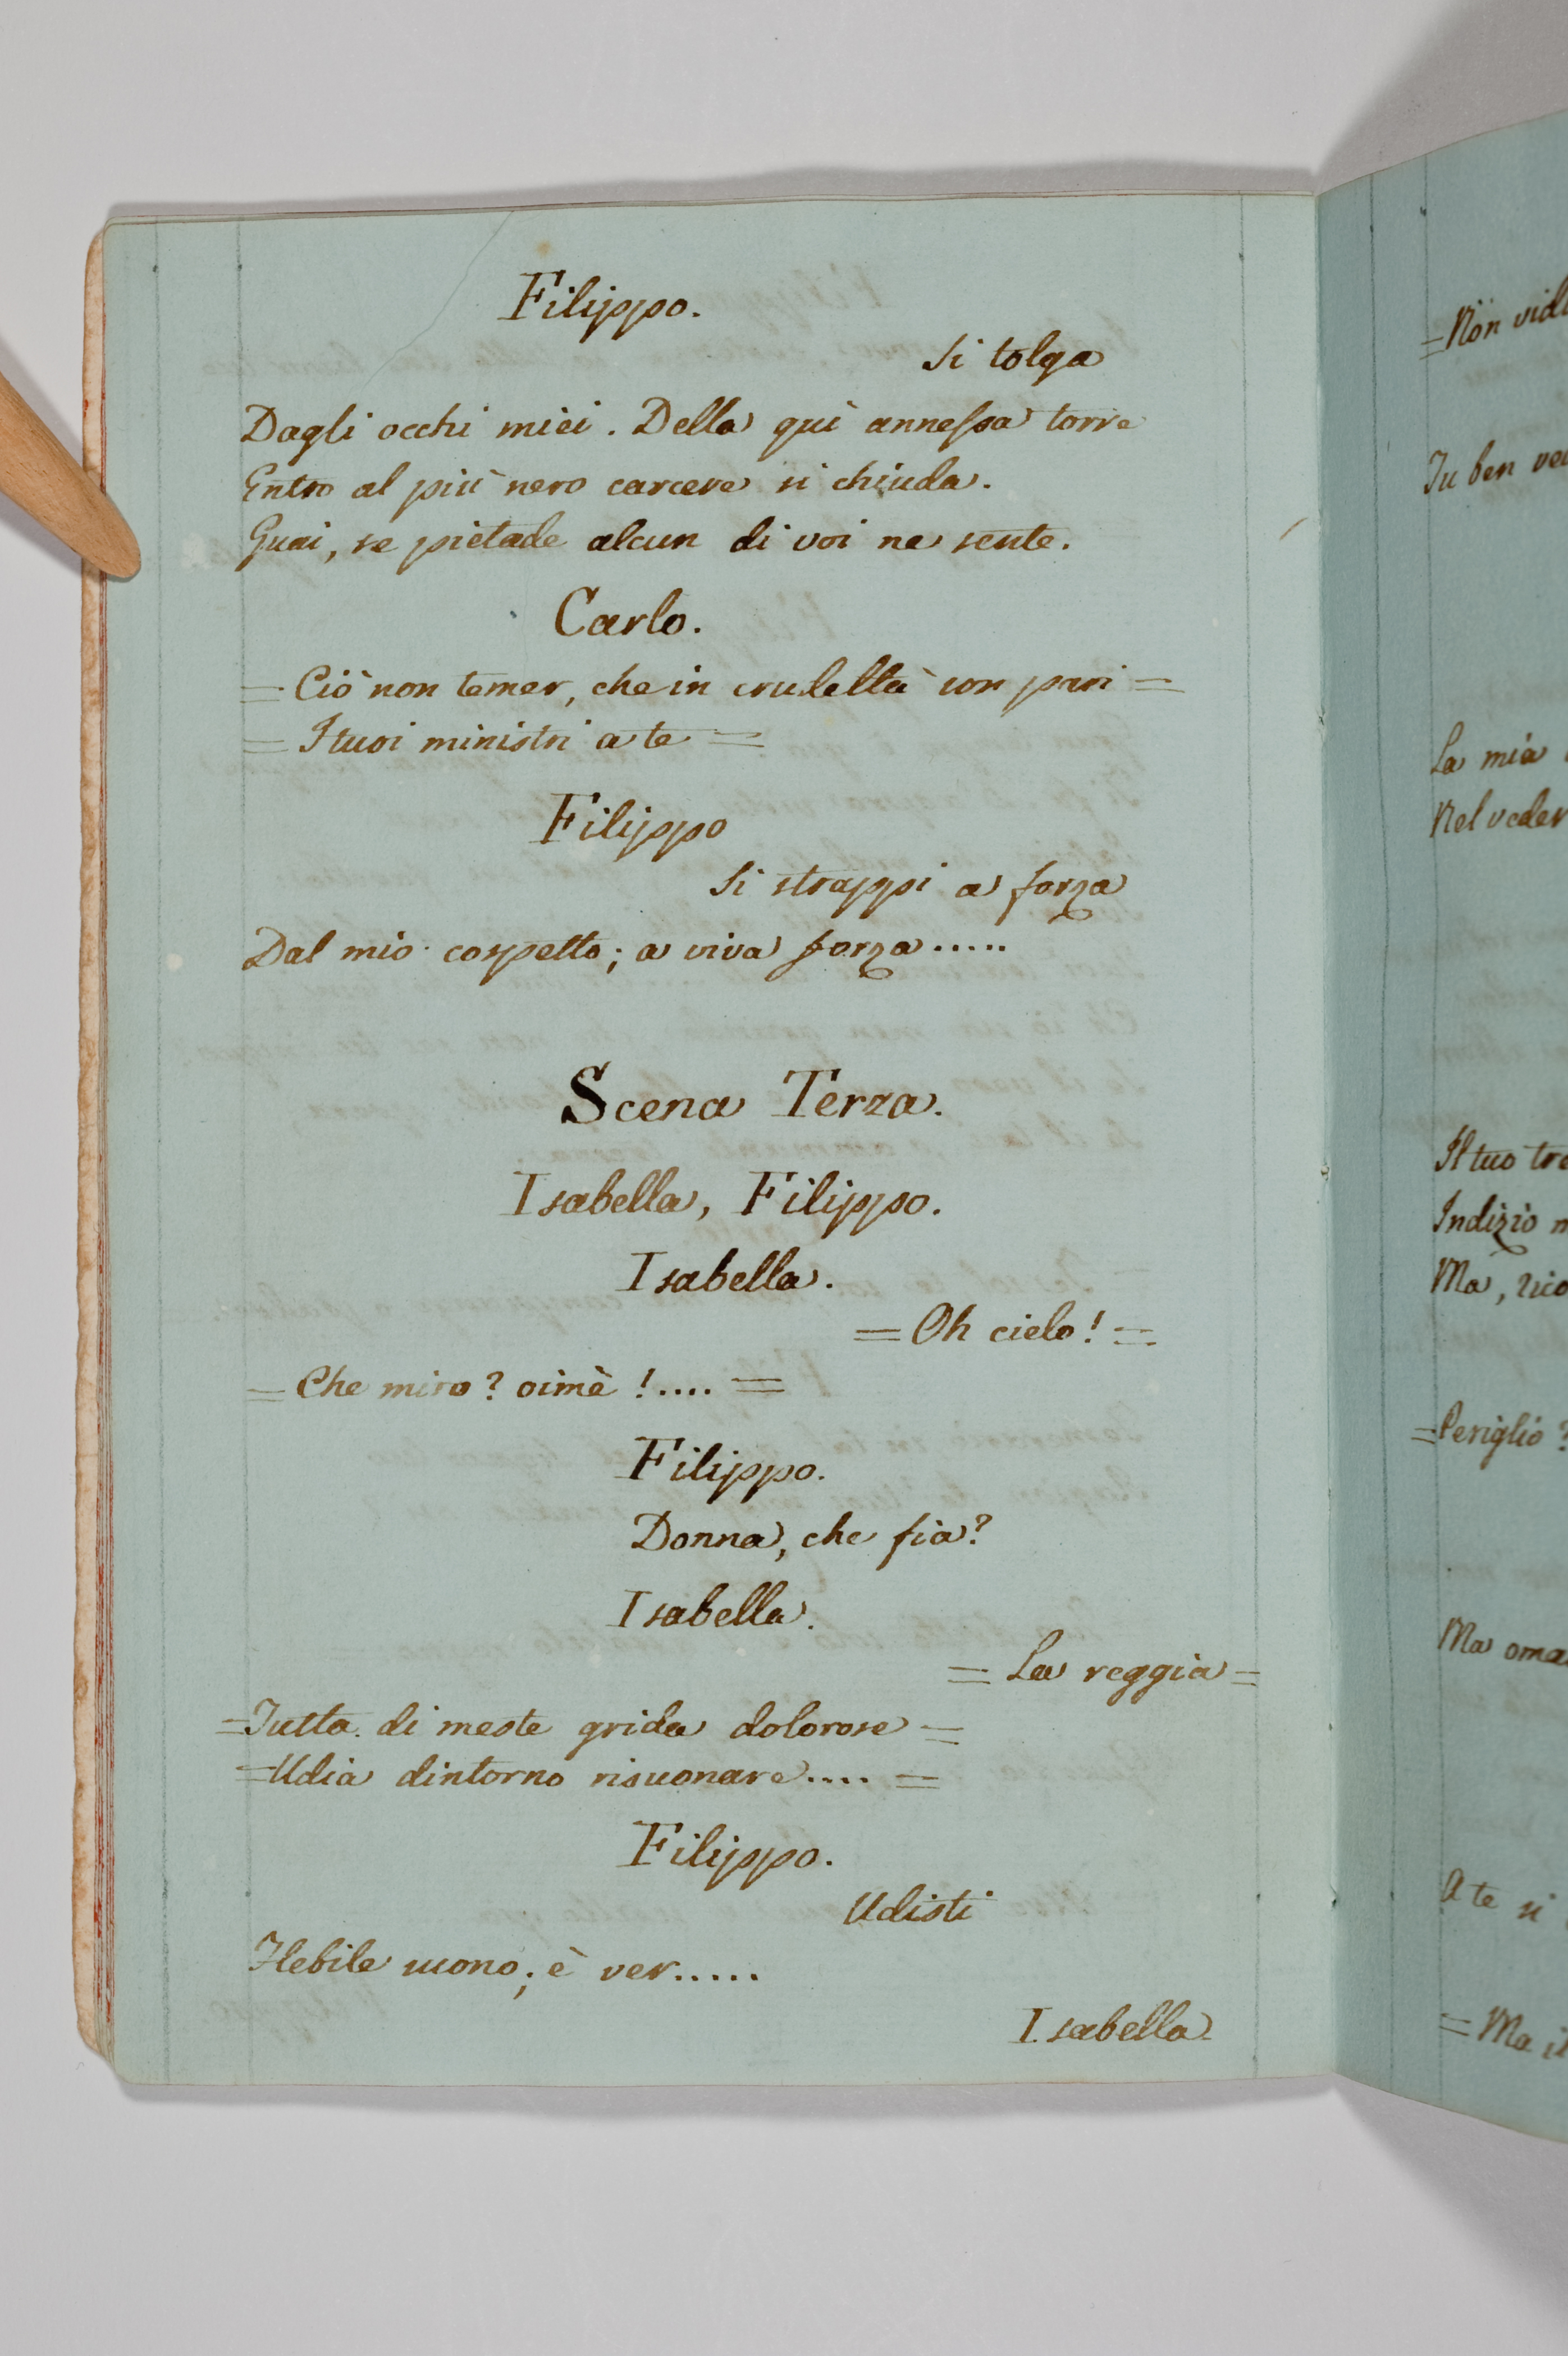 Filippo.
Si tolga
Dagli occhi miei. Della quì annessa torre
Entro al più nero carcere si chiuda.
Guai, se pietade alcun di voi ne sente.
Carlo.
= Ciò non temer, che in crudeltà son pari =
= I tuoi ministri a te =
Filippo
Si strappi a forza
Dal mio cospetto; a viva forza.....
Scena Terza.
Isabella, Filippo.
Isabella.
= Oh cielo! =
= Che miro? oimè!.... =
Filippo.
Donna, che fia?
Isabella.
= La reggia =
= Tutta di meste grida dolorose =
= Udia dintorno risuonare.... =
Filippo.
Udisti
Flebile suono; è ver.....
Isabella
= Non
Tu ben
La mia
Nel veder
Il tuo
Indizio
Ma,
= Periglio?
Ma
A te si
= Ma